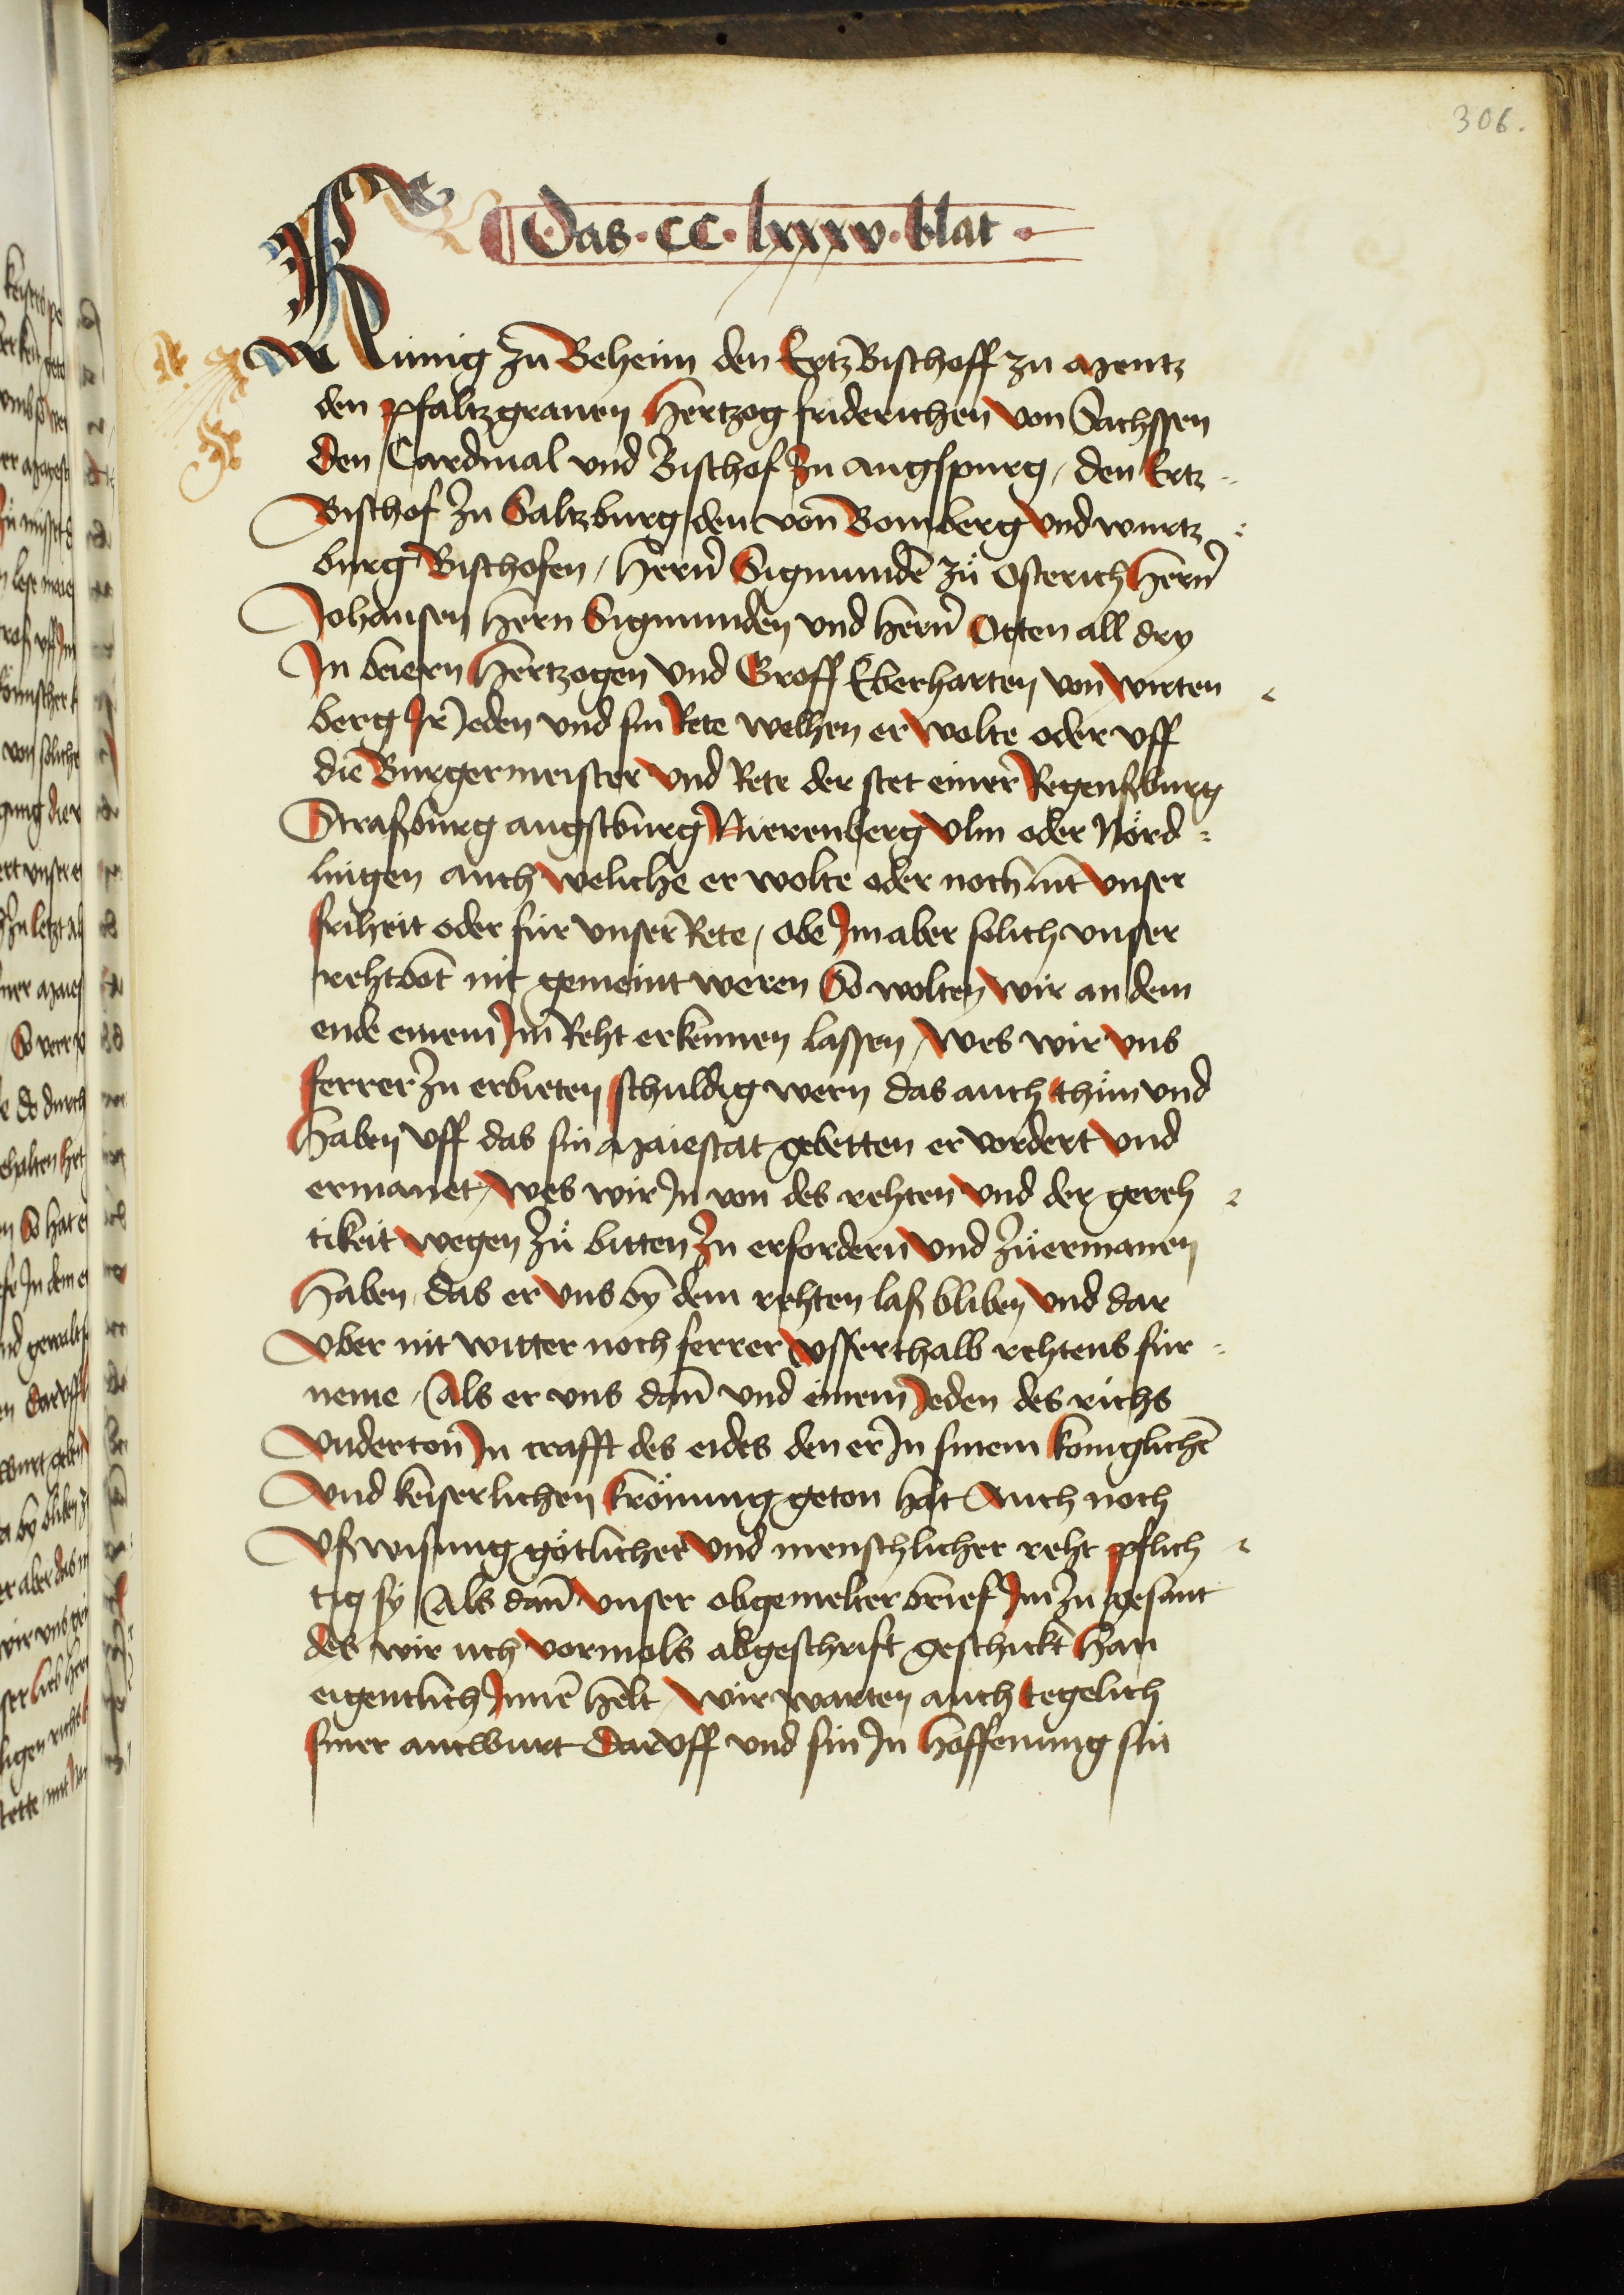 306.
Das · cc · lxxxv · blat ·
Künig zu Beheim den ErtzBischoff zu Mentz
den pfaltzgrauen Hertzog friderichen von Sachssen
den Cardinal vnd Bischof zu augspurg, den Ertz
Bischof zu Saltzburg den von Bomberg vnd wurtz
burg Bischofen, Hern̄ Sigmundē zů Osterich Hern̄
Johansen Hern Sigmunden vnd Hern̄ Otten all dry
In beiern Hertzogen vnd Groff Eberharten von wirten
berg Ir Jeden vnd sin Rete welhen er wolte oder vff
die Burgermeister vnd Rete der stet einer Regenspurg
Straßburg augstburg Nierenberg Vlm oder Nörd
lingen auch weliche er wolte oder noch mit vnser
friheit oder für vnser Rete, obe Im aber solich vnser
rehtbot nit gemeint weren So wolten wir an dem
ende einem Im Reht erkennen lassen, wes wir vns
ferrer zu erbieten schuldig wern das auch thün vnd
haben vff das sin Maiestat gebetten ervordert vnd
ermanet, wes wir In von des rehten vnd der gereh
tikeit wegen zů bitten zu erfordern vnd zůermanen
haben, das er vns bÿ dem rehten laß bliben vnd dar
vber nit witter noch ferrer vsserthalb rehtens für
neme, Als er vns dan̄ vnd einem Jeden des richs
vnderton In crafft des eides den er In sinem koniglichē
vnd keiserlichen krönung geton hat Auch noch
vßwisung götlicher vnd menschlicher reht pflich
tig sÿ Als dan̄ vnser obgemelter brief Im zu gesant
des wir uch vormols abgeschrift geschickt han
eigentlich Innē helt, wir warten auch tegelich
siner antwurt daruff vnd sin In hoffenung sin